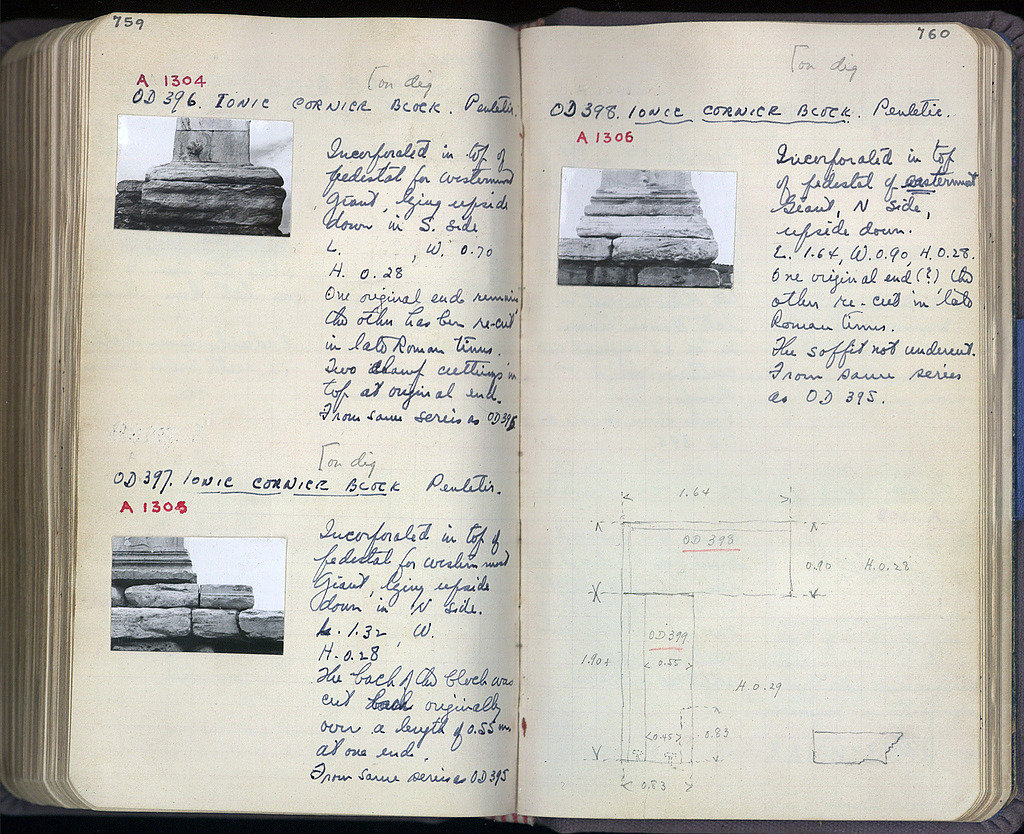 759
A 1304
[on dig
OD 396. IONIC CORNICE BLOCK. Pentelic.
Incorporated in top of
pedestal for westernmost
Giant, lying upside
down in S. side
L. , W. 0.70
H. 0.28
One original end remains
the other has been re-cut
in late Roman times.
Two clamp cuttings in
top at original end.
From same series as OD 395
[on dig
OD 397. IONIC CORNICE BLOCK Pentelic.
A 1305
Incorporated in top of
pedestal for westernmost
Giant, lying upside
down in N side.
L. 1.32, W.
H. 0.28
The back of the block was
cut back originally
over a length of 0.55 m
at one end.
From same series as OD 395
760
[on dig
OD 398. IONIC CORNICE BLOCK. Pentelic.
A 1306
Incorporated in top
of pedestal of
Giant, N side,
upside down.
L. 1.64, W. 0.90, H. 0.28.
One original end (?) the
other re-cut in late
Roman times.
The soffit not undercut.
From same series
as OD 395.
1.64
OD 398
0.90 H. 0.28
OD 399
1.90+ 0.55
H. 0.29
0.45 0.83
0.83